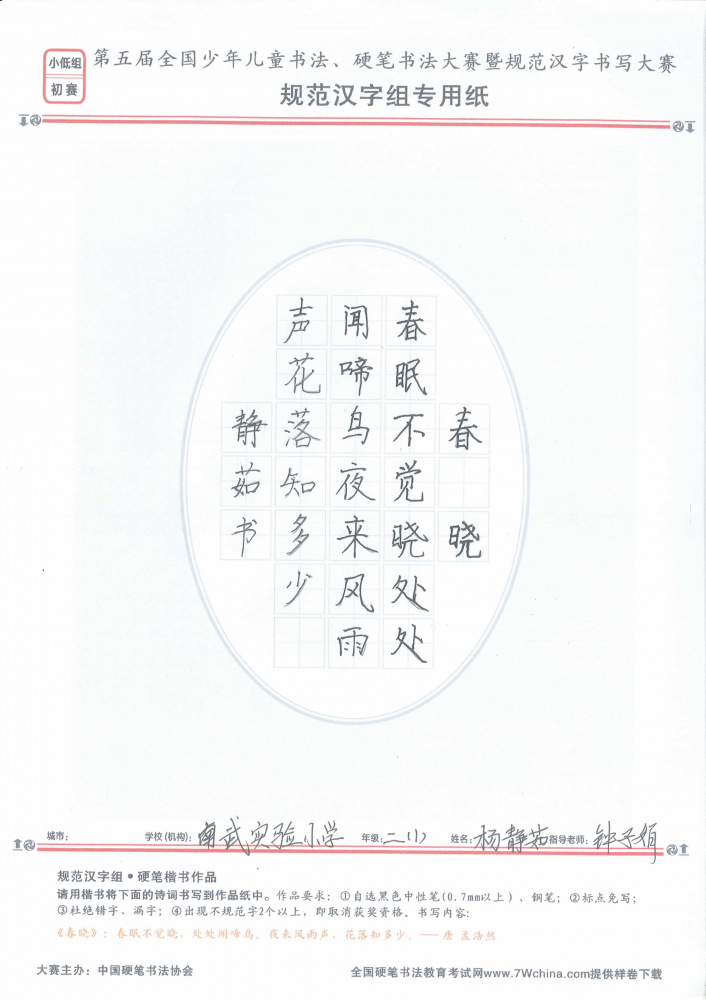 小低组
初赛
第五届全国少年儿童书法、硬笔书法大赛暨规范汉字书写大赛
规范汉字组专用纸
春晓
春眠不觉晓处处
闻啼鸟夜来风雨
声花落知多少
静茹书
城市：
学校(机构)：南武实验小学
年级：二(1)
姓名：杨静茹
指导老师：钟子绢
规范汉字组•硬笔楷书作品
请用楷书将下面的诗词书写到作品纸中。作品要求：①自选黑色中性笔(0.7mm以上)、钢笔；②标点免写；
③杜绝错字、漏字；④出现不规范字2个以上，即取消获奖资格。书写内容：
《春晓》：春眠不觉晓，处处闻啼鸟。夜来风雨声，花落知多少。——唐 孟浩然
大赛主办：中国硬笔书法协会
全国硬笔书法教育考试网www.7Wchina.com提供样卷下载